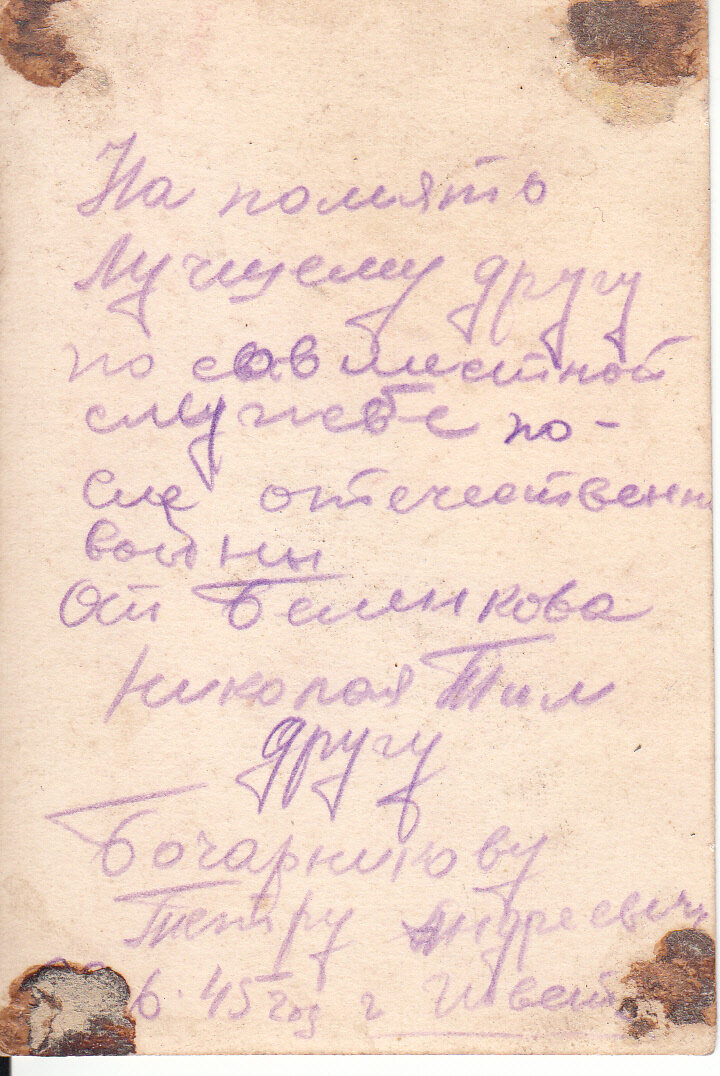 На помять
Лучшему другу
по совместной
службе по-
сле отечественн
войны
От Беликова
Николая Тим
другу
Бочарникову
Петру Андреевич
6.45 год г